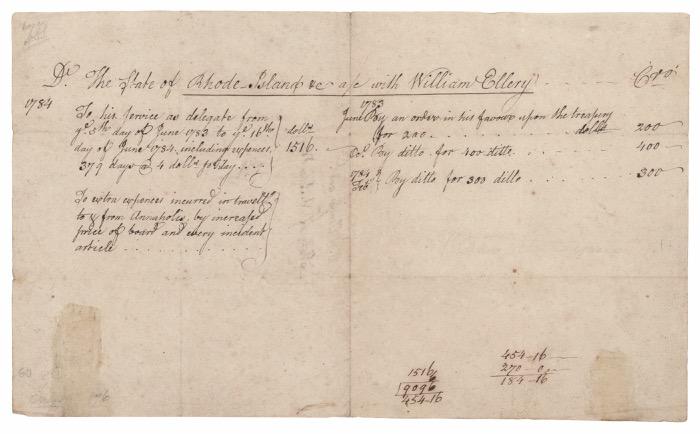 Dr. The State of Rhode-Island &c a/c with William Ellery Crs.
1784
To his service as delegate from
ye. 5th day of June 1783 to ye. 16th
day of June 1784, including expences,
379 days @ 4 dollrs. pr day
dollrs.
1516.
To extra expences incurred in travellg.
to & from Annapolis, by increased
price of board and every incident
article
1783
June By an order in his favour upon the treasury
for 200 dollrs. 200
By ditto for 400 ditto 400
1784
Feb By ditto for 300 ditto 300
1516
6
9096
454-16
454-16
270 0
184-16